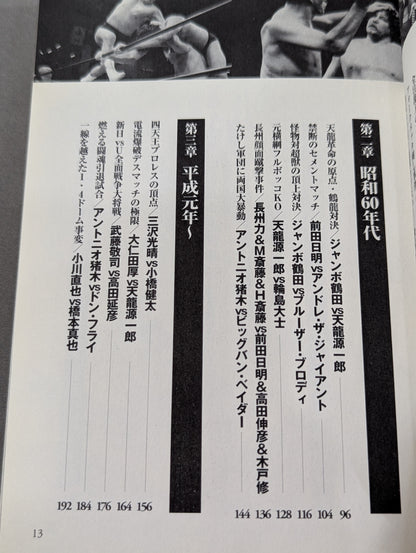 第二章 昭和60年代
天龍革命の原点・鶴龍対決／ジャンボ鶴田vs天龍源一郎 96
禁断のセメントマッチ／前田日明vsアンドレ・ザ・ジャイアント 104
怪物対超獣の頂上対決／ジャンボ鶴田vsブルーザー・ブロディ 116
元横綱フルボッコKO／天龍源一郎vs輪島大士 128
長州顔面蹴撃事件／長州力&M斎藤&H斎藤vs前田日明&高田伸彦&木戸修 136
たけし軍団に両国大暴動／アントニオ猪木vsビッグバン・ベイダー 144
第三章 平成元年〜
四天王プロレスの頂点／三沢光晴vs小橋健太 156
電流爆破デスマッチの極限／大仁田厚vs天龍源一郎 164
新日vsU全面戦争大将戦／武藤敬司vs高田延彦 176
燃える闘魂引退試合／アントニオ猪木vsドン・フライ 184
一線を越えた1・4ドーム事変／小川直也vs橋本真也 192
13